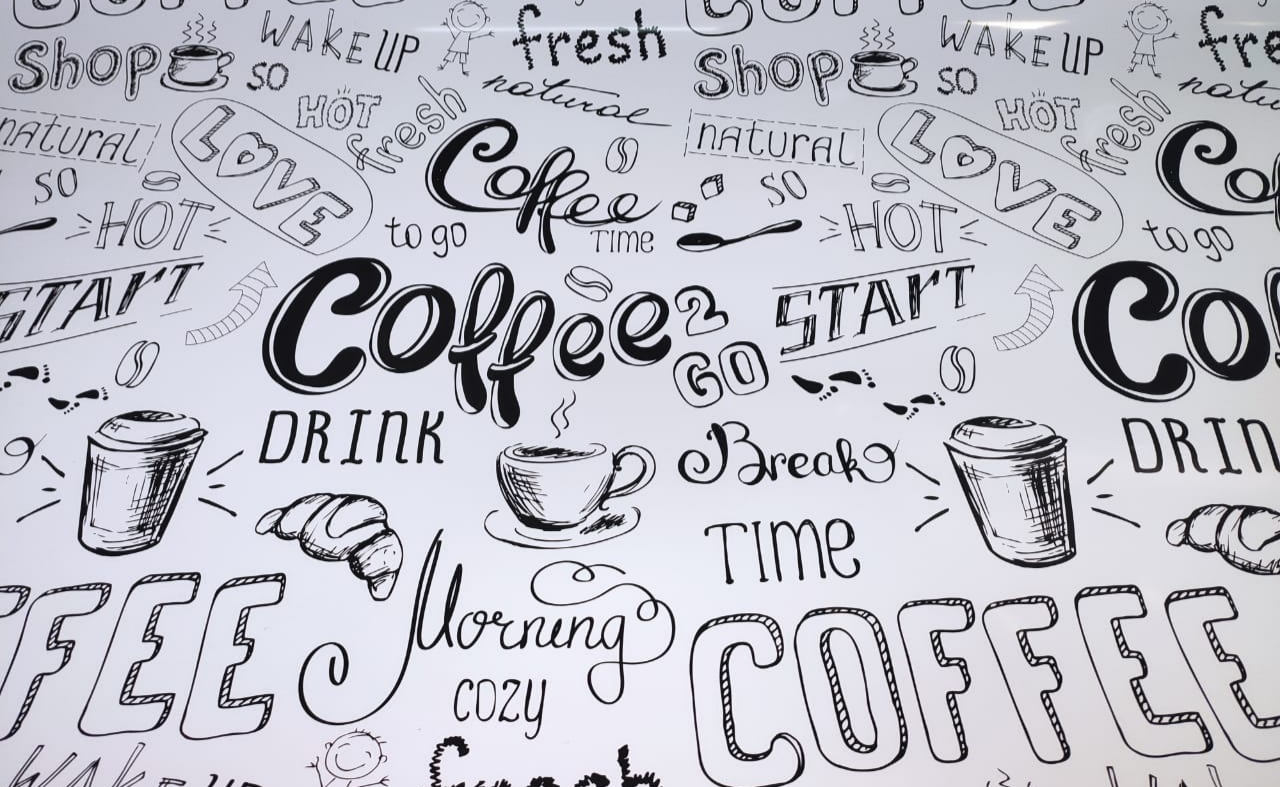 COFFEE COFFEE
Shop so WAKE UP fresh Shop so WAKE UP fre
natural HOT fresh natural natural HOT fresh natu
so LOVE Coffee so LOVE Co
HOT to go TIME HOT to go
START Coffee 2 START Co
GO
DRINK Break DRIN
TIME
FFEE Morning COFFEE
cozy
WAKE UP fresh